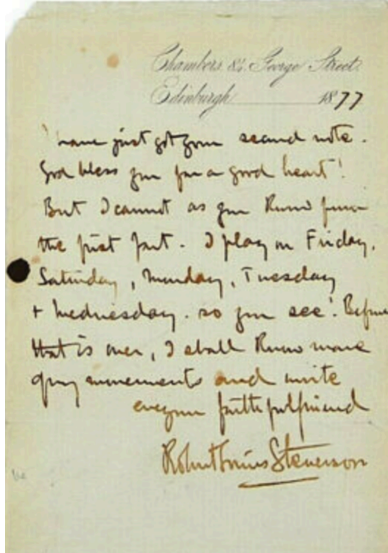 Chambers 84 George Street
Edinburgh 1877
I have just got your second note.
God bless you for a good heart!
But I cannot as you know from
the first part. I play on Friday,
Saturday, Monday, Tuesday
+ Wednesday. so you see! Before
that is over, I shall know more
of my movements and write
ever your faithful friend
Robert Louis Stevenson